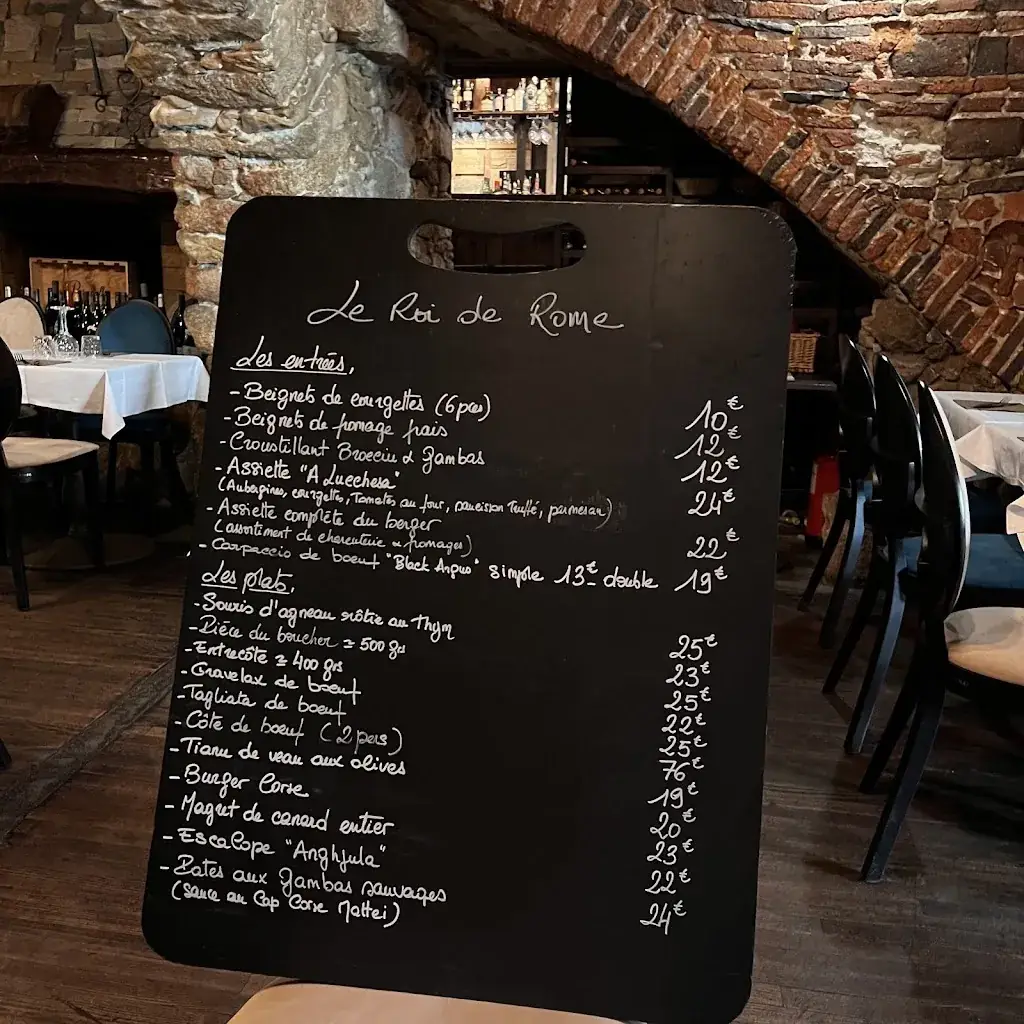 Le Roi de Rome
Les entrées,
- Beignets de courgettes (6 pces) 10€
- Beignets de fromage frais 12€
- Croustillant Brocciu & Gambas 12€
- Assiette "A Lucchesa" 24€
(Aubergines, courgettes, Tomates au four, saucisson Truffé, parmesan)
- Assiette complète du berger 22€
(assortiment de charcuterie & fromages)
- Carpaccio de boeuf "Black Angus" simple 13€ double 19€
Les plats,
- Souris d'agneau rôtie au Thym 25€
- Pièce du boucher ≃ 500 grs 23€
- Entrecôte ≃ 400 grs 25€
- Gravelax de boeuf 22€
- Tagliata de boeuf 25€
- Côte de boeuf (2 pers) 76€
- Tianu de veau aux olives 19€
- Burger Corse 20€
- Magret de canard entier 23€
- Escalope "Anghjula" 22€
- Pates aux Gambas sauvages 24€
(sauce au Cap Corse Mattei)